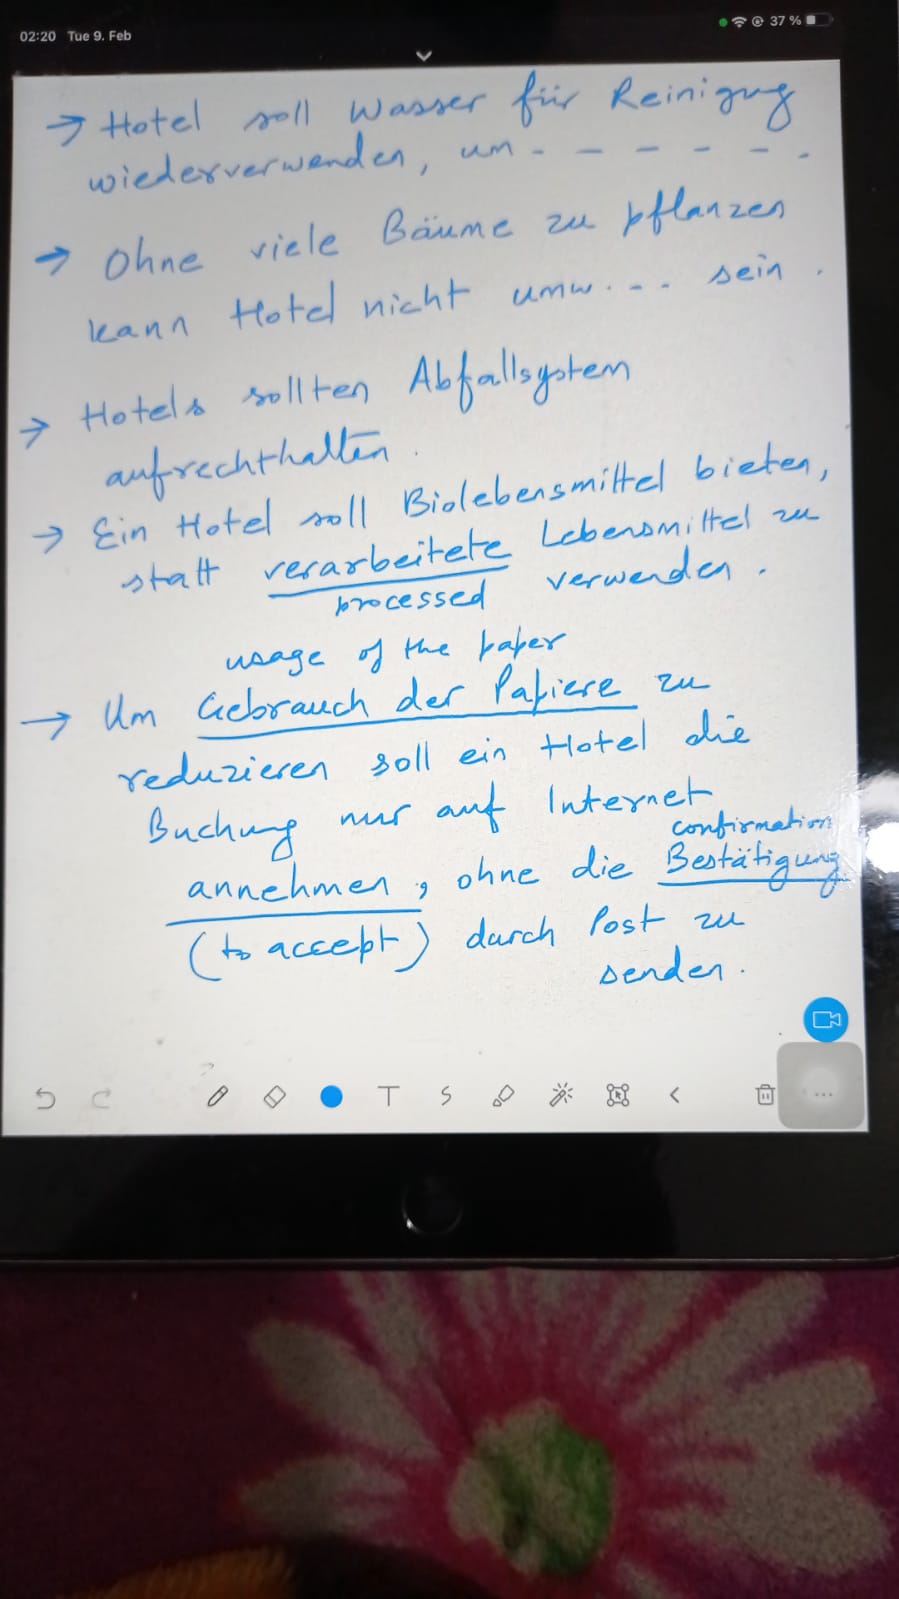 02:20 Tue 9. Feb
37 %
→ Hotel soll Wasser für Reinigung
wiederverwenden, um - - - - - .
→ Ohne viele Bäume zu pflanzen
kann Hotel nicht umw. - - . sein .
→ Hotels sollten Abfallsystem
aufrechthalten .
→ Ein Hotel soll Biolebensmittel bieten,
statt verarbeitete Lebensmittel zu
processed verwenden .
usage of the paper
→ Um Gebrauch der Papiere zu
reduzieren soll ein Hotel die
Buchung nur auf Internet
confirmation
annehmen, ohne die Bestätigung
(to accept) durch Post zu
senden .
T S